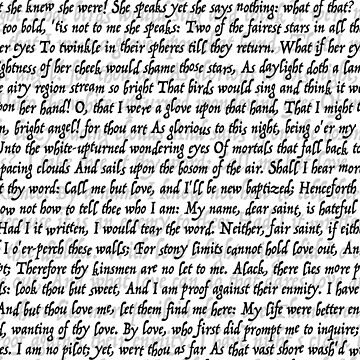 t she knew she were! She speaks yet she says nothing: what of that?
too bold, 'tis not to me she speaks: Two of the fairest stars in all th
er eyes To twinkle in their spheres till they return. What if her ey
ightness of her cheek would shame those stars, As daylight doth a lam
e airy region stream so bright That birds would sing and think it we
pon her hand! O, that I were a glove upon that hand, That I might t
n, bright angel! for thou art As glorious to this night, being o'er my
Unto the white-upturned wondering eyes Of mortals that fall back to
pacing clouds And sails upon the bosom of the air. Shall I hear mor
t thy word: Call me but love, and I'll be new baptized; Henceforth
ow not how to tell thee who I am: My name, dear saint, is hateful
Had I it written, I would tear the word. Neither, fair saint, if eith
I o'er-perch these walls; For stony limits cannot hold love out, An
pt; Therefore thy kinsmen are no let to me. Alack, there lies more p
ls: look thou but sweet, And I am proof against their enmity. I have
And but thou love me, let them find me here: My life were better en
d, wanting of thy love. By love, who first did prompt me to inquire;
es. I am no pilot; yet, wert thou as far As that vast shore wash'd w